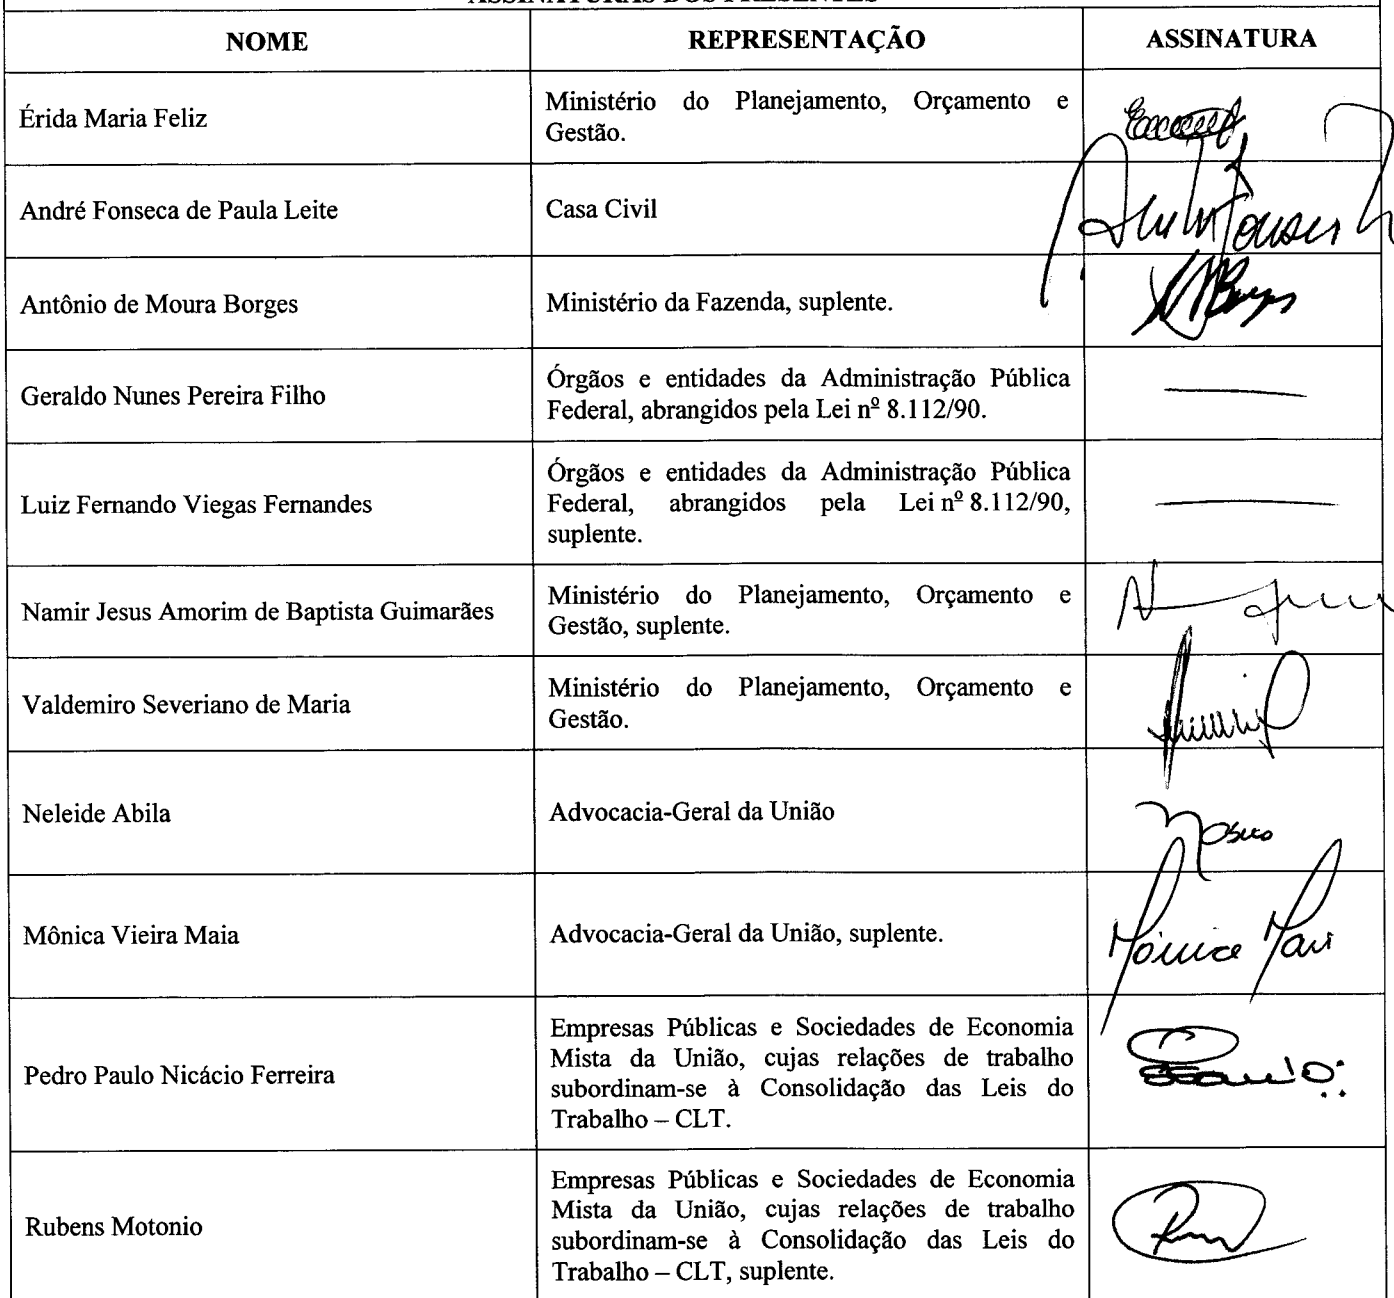 ASSINATURAS DOS PRESENTES
NOME REPRESENTAÇÃO ASSINATURA
Érida Maria Feliz
Ministério do Planejamento, Orçamento e
Gestão.
André Fonseca de Paula Leite
Casa Civil
Antônio de Moura Borges
Ministério da Fazenda, suplente.
Geraldo Nunes Pereira Filho
Órgãos e entidades da Administração Pública
Federal, abrangidos pela Lei nº 8.112/90.
Luiz Fernando Viegas Fernandes
Órgãos e entidades da Administração Pública
Federal, abrangidos pela Lei nº 8.112/90,
suplente.
Namir Jesus Amorim de Baptista Guimarães
Ministério do Planejamento, Orçamento e
Gestão, suplente.
Valdemiro Severiano de Maria
Ministério do Planejamento, Orçamento e
Gestão.
Neleide Abila
Advocacia-Geral da União
Mônica Vieira Maia
Advocacia-Geral da União, suplente.
Pedro Paulo Nicácio Ferreira
Empresas Públicas e Sociedades de Economia
Mista da União, cujas relações de trabalho
subordinam-se à Consolidação das Leis do
Trabalho – CLT.
Rubens Motonio
Empresas Públicas e Sociedades de Economia
Mista da União, cujas relações de trabalho
subordinam-se à Consolidação das Leis do
Trabalho – CLT, suplente.